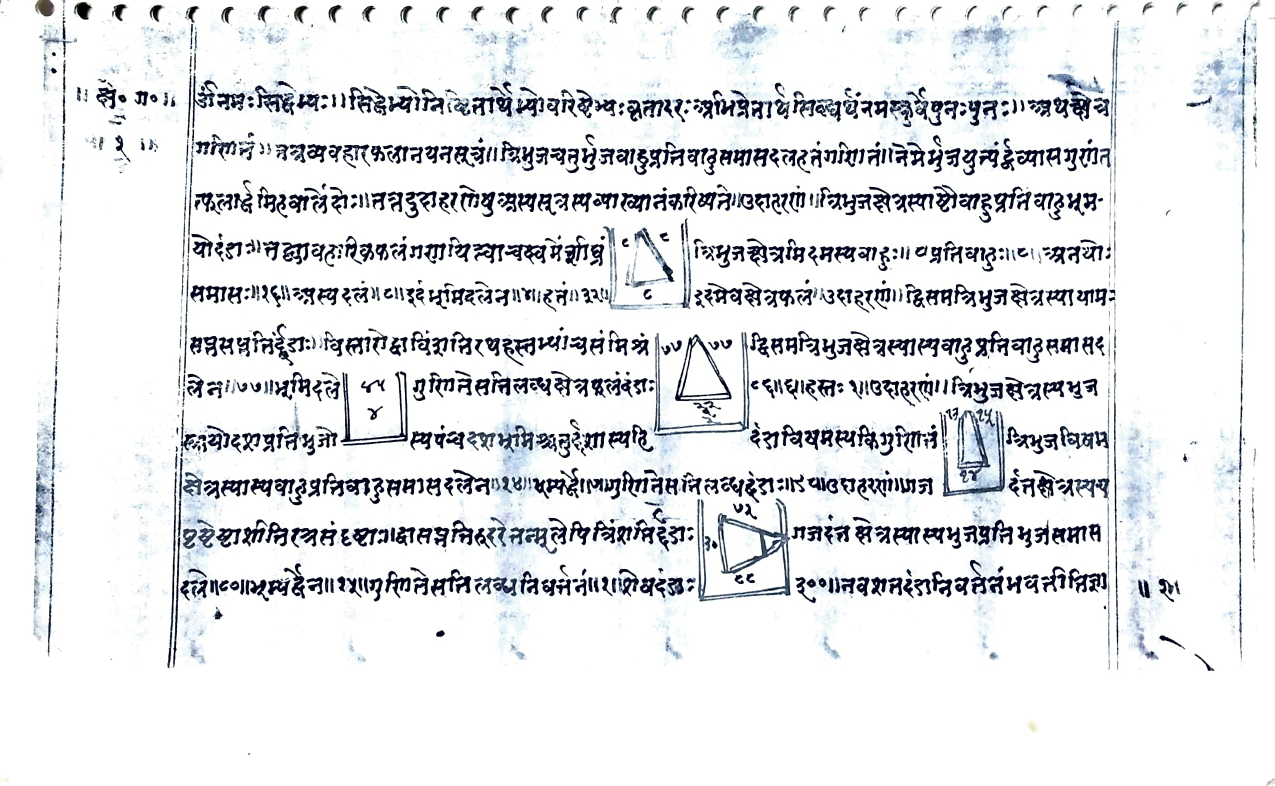 ॥ क्षे॰ ग॰ ॥
१
ॐनमःसिद्धेभ्यः॥सिद्धेभ्योनिष्ठितार्थेभ्योवरिष्ठेभ्यःकृतादरःअभिप्रेतार्थसिद्ध्यर्थंनमस्कुर्वेपुनःपुनः॥अथक्षेत्र
गणितं॥तत्रव्यवहारफलानयनसूत्रं॥त्रिभुजचतुर्भुजबाहुप्रतिबाहुसमासदलहतंगणितं॥नेमेर्भुजयुत्यर्द्धंव्यासगुणंत
त्फलार्द्धमिहबालेंदोः॥तत्रदुदाहरणेषुअस्यसूत्रस्यव्याख्यानंकरिष्यते॥उदाहरणं॥त्रिभुजक्षेत्रस्याष्टौबाहुप्रतिबाहुभूम-
योदंडाः॥तद्व्यावहारिकफलंगणयित्वाचक्ष्वमेशीघ्रं
८ ८
८
त्रिभुजक्षेत्रमिदमस्यबाहुः॥८प्रतिबाहुः॥८॥अनयोः
समासः॥१६॥अस्यदलं॥८॥इदंभूमिदलेन॥४॥हतं॥३२॥
इदमेवक्षेत्रफलं॥उदाहरणं॥द्विसमत्रिभुजक्षेत्रस्यायामः
सप्तसप्ततिर्दंडाः॥विस्तारोद्वाविंशतिरथहस्ताभ्यांचसंमिश्रं
७७ ७७
२२
२
द्विसमत्रिभुजक्षेत्रस्यास्यबाहुप्रतिबाहुसमासद
लेन॥७७॥भूमिदले
४५
४
गुणितेसतिलब्धक्षेत्रफलंदंडाः
८६६॥हस्तः१॥उदाहरणं॥त्रिभुजक्षेत्रस्यभुज
स्त्रयोदशप्रतिभुजो
स्यपंचदशभूमिश्चतुर्दशास्यहि
दंडाविषमस्यकिंगुणितं
१३ १५
१४
त्रिभुजविषम
क्षेत्रस्यास्यबाहुप्रतिबाहुसमासदलेन॥१४॥भूम्यर्द्धे॥७॥गुणितेसतिलब्धदंडाः॥९८॥उदाहरणं॥गज
दंतक्षेत्रस्यच
पृष्ठेष्टाशीतिरत्रसंदृष्टाः॥द्वासप्ततिरुदरेतन्मूलेपित्रिंशतिर्दंडाः
७२
३०
८८
गजदंतक्षेत्रस्यास्यभुजप्रतिभुजसमास
दले॥८०॥भूम्यर्द्धेन॥१५॥गुणितेसतिलब्धनिवर्त्तनं॥१॥शेषदंडाः
३००॥नवशतदंडानिवर्त्तनंभवतीतिज्ञा
॥ १॥